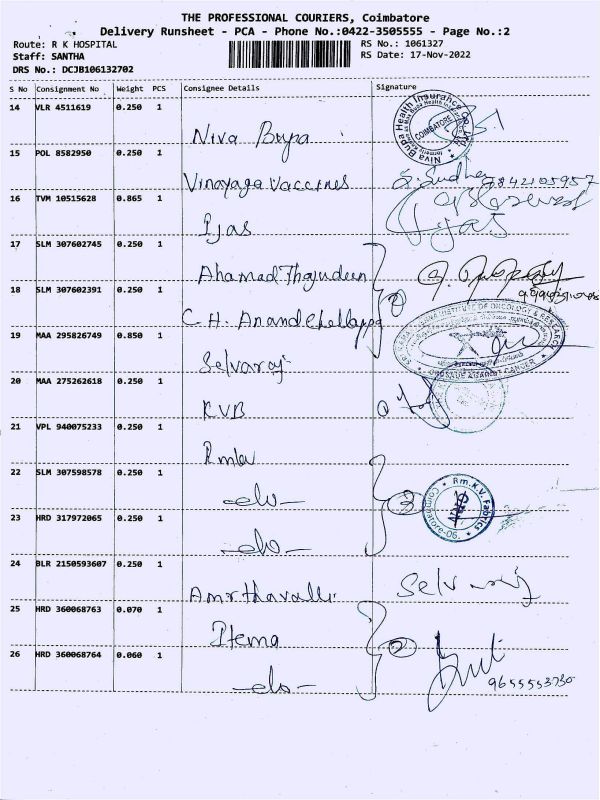 THE PROFESSIONAL COURIERS, Coimbatore
Delivery Runsheet - PCA - Phone No.:0422-3505555 - Page No.:2
Route: R K HOSPITAL RS No.: 1061327
Staff: SANTHA RS Date: 17-Nov-2022
DRS No.: DCJB106132702
S No Consignment No Weight PCS Consignee Details Signature
14 VLR 4511619 0.250 1 Niva Bupa
COIMBATORE
15 POL 8582950 0.250 1 Vinayaga Vaccines 9842105957
16 TVM 10515628 0.865 1 Ijas
17 SLM 307602745 0.250 1 Ahamad Thajudeen
18 SLM 307602391 0.250 1 C.H. Anand
INSTITUTE OF ONCOLOGY & RESEARCH
CRUSADE AGAINST CANCER
19 MAA 295826749 0.850 1 Selvaraj
20 MAA 275262618 0.250 1 KVB
21 VPL 940075233 0.250 1
22 SLM 307598578 0.250 1 -do-
Rm.K.V. Fabrics
Coimbatore-06.
23 HRD 317972065 0.250 1 -do-
24 BLR 2150593607 0.250 1 Amrthavalli Selvaraj
25 HRD 360068763 0.070 1 Itema
2
26 HRD 360068764 0.060 1 -do-
9655553730